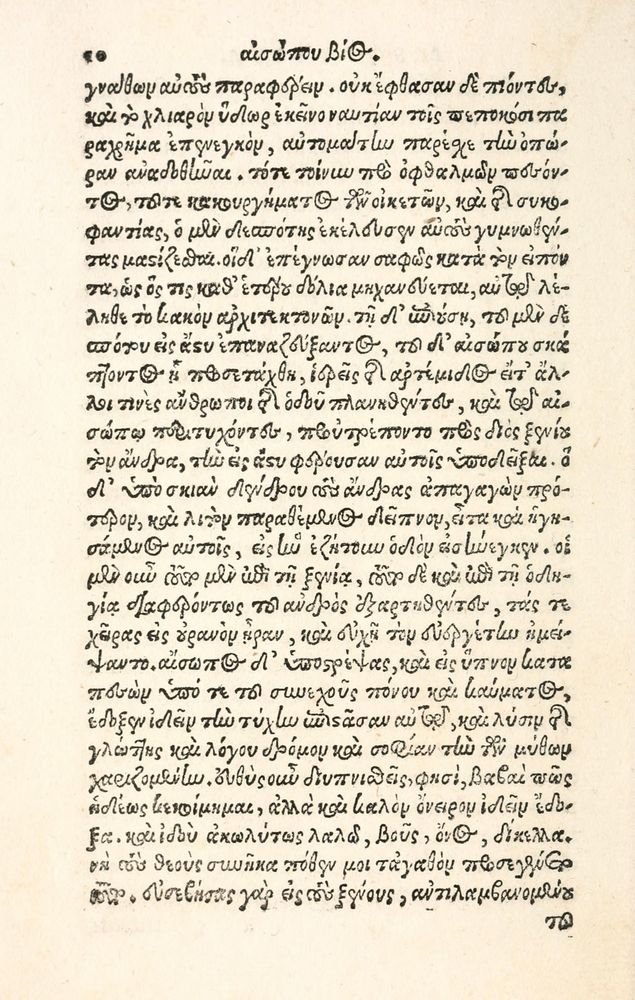 10 αἰσώπου βίος.
γναίθων αὐτοὺς παραφέρειν. οὐκ ἔφθασαν δὲ πιόντες,
καὶ τὸ χλιαρὸν ὕδωρ ἐκεῖνο ναυτίαν τοῖς πεπωκόσι πα
ραχρῆμα ἐπηνεγκὸν, αὐτομάτην παρέσχε τὴν ὀπώ-
ραν ἀναδοθῆναι. τότε τοίνυν πρὸ ὀφθαλμῶν πεσόν-
τος, τοῦτε κακουργήματος τῶν οἰκετῶν, καὶ τῆς συκο-
φαντίας, ὁ μὲν δεσπότης ἐκέλευσεν αὐτοὺς γυμνωθέν-
τας μαστίζεσθαι. οἱ δ' ἐπέγνωσαν σαφῶς κατὰ τὸν εἰπόν
τα, ὡς ὅς τις καθ' ἑτέρου δόλια μηχανεύεται, αὑτῷ λέ-
ληθε τὸ κακὸν ἀρχιτεκτονῶν. τῇ δ' ἐπιούσῃ, τοῦ μὲν δε
σπότου εἰς ἄστυ ἐπαναζεύξαντος, τοῦ δ' αἰσώπου σκά
πτοντος ᾗ προσετάχθη, ἱερεῖς τῆς ἀρτέμιδος εἴτ' ἄλ-
λοι τινὲς ἄνθρωποι τῆς ὁδοῦ πλανηθέντες, καὶ τῷ αἰ-
σώπῳ περιτυχόντες, προὐτρέποντο πρὸς διὸς ξενίου
τὸν ἄνδρα, τὴν εἰς ἄστυ φέρουσαν αὐτοῖς ὑποδεῖξαι. ὁ
δ' ὑπὸ σκιὰν δένδρου τοὺς ἄνδρας ἀπαγαγὼν πρό-
τερον, καὶ λιτὸν παραθέμενος δεῖπνον, εἶτα καὶ ἡγη-
σάμενος αὐτοῖς, εἰς ἣν ἐζήτουν ὁδὸν εἰσήνεγκεν. οἱ
μὲν οὖν τοῦτο μὲν ἐπὶ τῇ ξενίᾳ, τοῦτο δὲ καὶ ἐπὶ τῇ ὁδη-
γίᾳ διαφερόντως τοῦ ἀνδρὸς ἐξαρτηθέντες, τάς τε
χεῖρας εἰς οὐρανὸν ἦραν, καὶ εὐχῇ τὸν εὐεργέτην ἠμεί-
ψαντο. αἴσωπος δ' ὑποστρέψας, καὶ εἰς ὕπνον κατα
πεσὼν ὑπό τε τοῦ συνεχοῦς πόνου καὶ καύματος,
ἔδοξεν ἰδεῖν τὴν τύχην ἐπιστᾶσαν αὐτῷ, καὶ λύσιν τῆς
γλώττης καὶ λόγου δρόμον καὶ σοφίαν τὴν τῶν μύθων
χαριζομένην. εὐθὺς οὖν διυπνισθεὶς, φησὶ, βαβαὶ πῶς
ἡδέως κεκοίμημαι, ἀλλὰ καὶ καλὸν ὄνειρον ἰδεῖν ἔδο-
ξα. καὶ ἰδοὺ ἀκωλύτως λαλῶ, βοῦς, ὄνος, δίκελλα.
νὴ τοὺς θεοὺς συνῆκα πόθεν μοι τἀγαθὸν προσεγένετο
τοῦτο. εὐσεβήσας γὰρ εἰς τοὺς ξένους, ἀντιλαμβανομένου
τοῦ